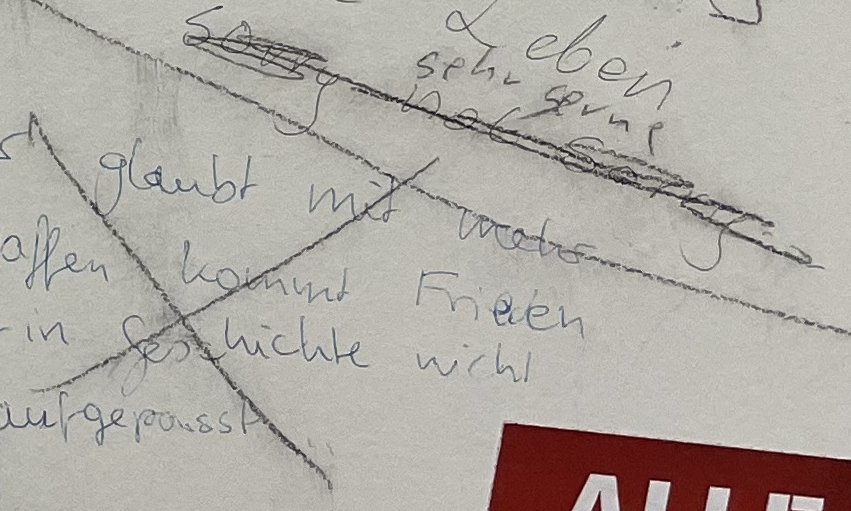 Leben
sehr gerne
Sorry not Sorry
glaubt mit mehr
affen kommt Frieden
in Geschichte nicht
aufgepasst